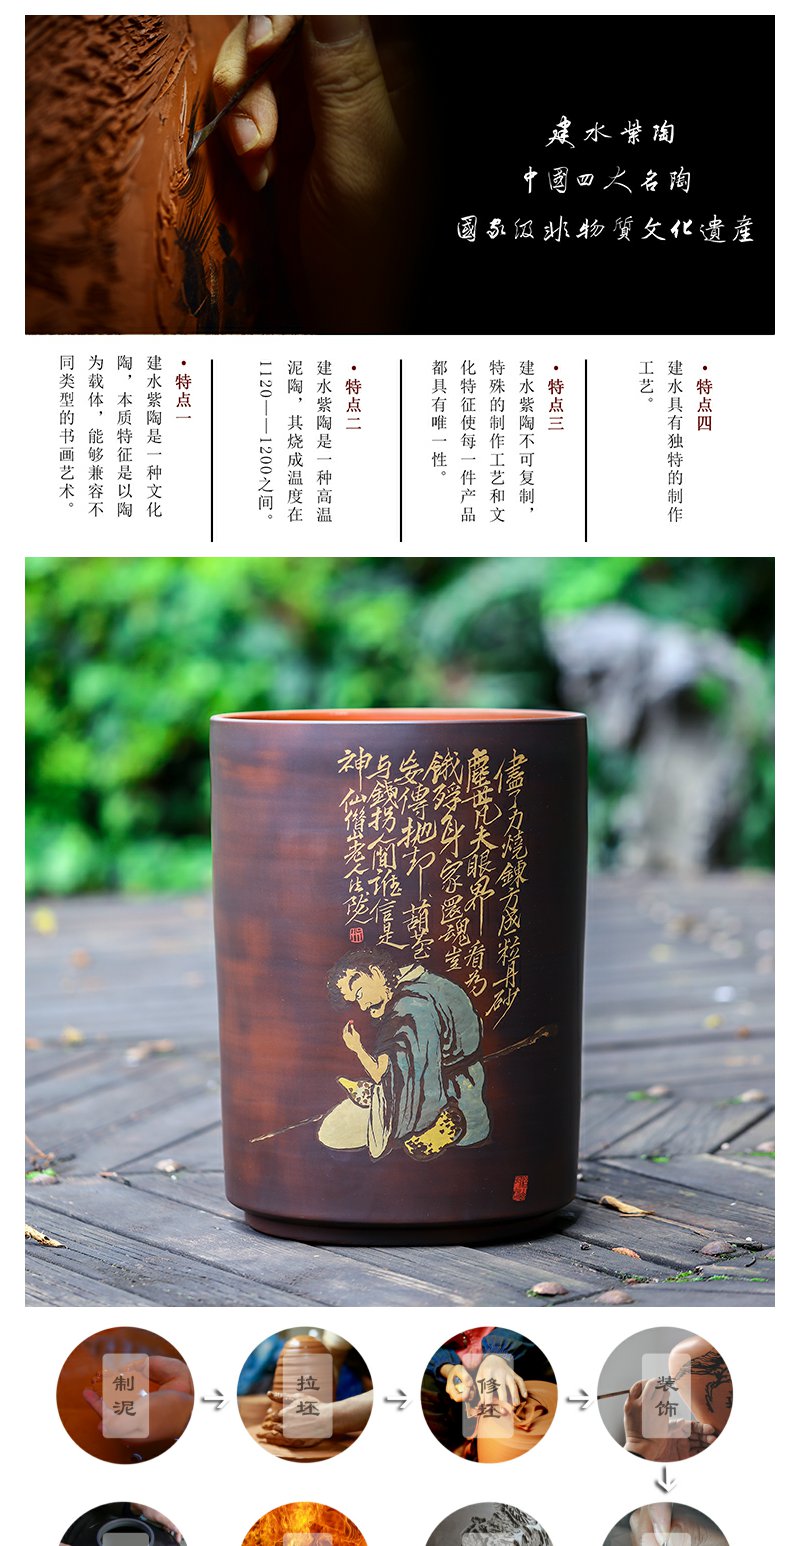 建水紫陶
中國四大名陶
國家级非物質文化遺産
•特点一
建水紫陶是一种文化
陶，本质特征是以陶
为载体，能够兼容不
同类型的书画艺术。
•特点二
建水紫陶是一种高温
泥陶，其烧成温度在
1120——1200之间。
•特点三
建水紫陶不可复制，
特殊的制作工艺和文
化特征使每一件产品
都具有唯一性。
•特点四
建水具有独特的制作
工艺。
儘了力燒鍊方成粒丹砂
塵世凡夫眼界看為
餓殍身家還魂豈
妄傳抛却葫芦
与錢拐人間誰信是
神仙
制泥
拉坯
修坯
装饰